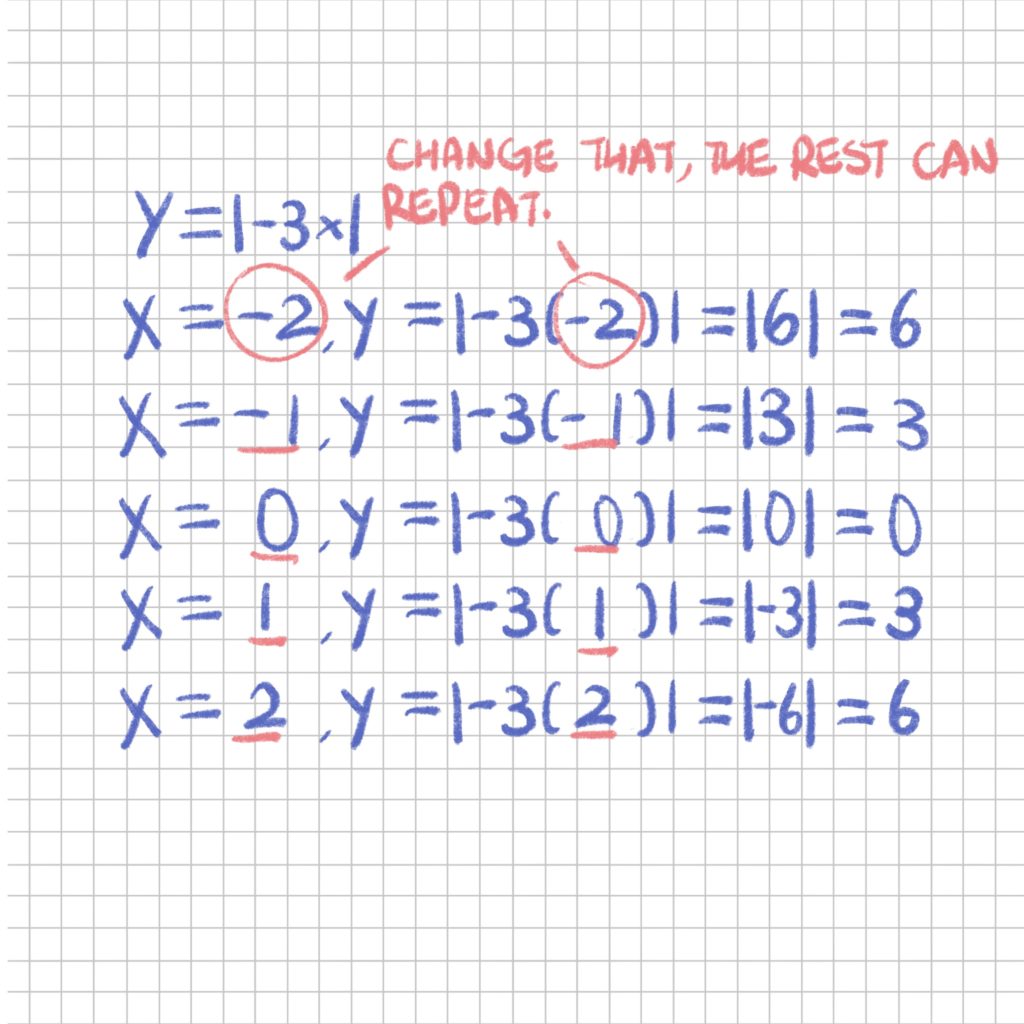 CHANGE THAT, THE REST CAN
REPEAT.
Y=|-3x|
X=-2, Y=|-3(-2)|=|6|=6
X=-1, Y=|-3(-1)|=|3|=3
X=0, Y=|-3(0)|=|0|=0
X=1, Y=|-3(1)|=|-3|=3
X=2, Y=|-3(2)|=|-6|=6